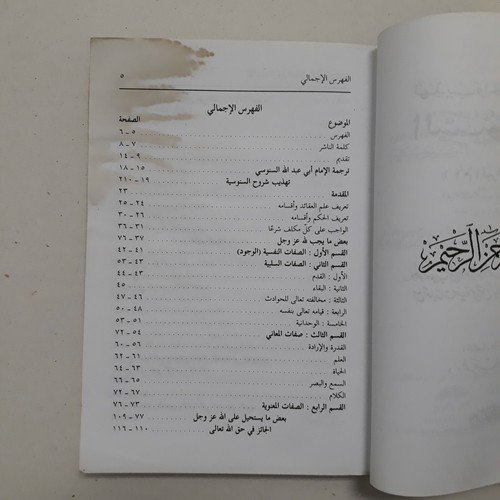 الفهرس الإجمالي ٥
الفهرس الإجمالي
الموضوع الصفحة
الفهرس ٥ - ٦
كلمة الناشر ٧ - ٨
تقديم ٩ - ١٤
ترجمة الإمام أبي عبد الله السنوسي ١٥ - ١٨
تهذيب شروح السنوسية ١٩ - ٢١٠
المقدمة ٢٣
تعريف علم العقائد وأقسامه ٢٤ - ٢٥
تعريف الحكم وأقسامه ٢٦ - ٣٠
الواجب على كلّ مكلف شرعًا ٣١ - ٣٦
بعض ما يجب لله عز وجل ٣٧ - ٧٦
القسم الأول : الصفات النفسية (الوجود) ٤١ - ٤٢
القسم الثاني : الصفات السلبية ٤٣ - ٥٣
الأول : القدم ٤٣ - ٤٤
الثانية : البقاء ٤٥
الثالثة : مخالفته تعالى للحوادث ٤٦ - ٤٧
الرابعة : قيامه تعالى بنفسه ٤٨ - ٥٠
الخامسة : الوحدانية ٥١ - ٥٣
القسم الثالث : صفات المعاني ٥٤ - ٧٢
القدرة والإرادة ٥٦ - ٦٠
العلم ٦١ - ٦٢
الحياة ٦٣ - ٦٤
السمع والبصر ٦٥ - ٦٦
الكلام ٦٧ - ٧٢
القسم الرابع : الصفات المعنوية ٧٣ - ٧٦
بعض ما يستحيل على الله عز وجل ٧٧ - ١٠٩
الجائز في حق الله تعالى ١١٠ - ١١٦
الرحيم